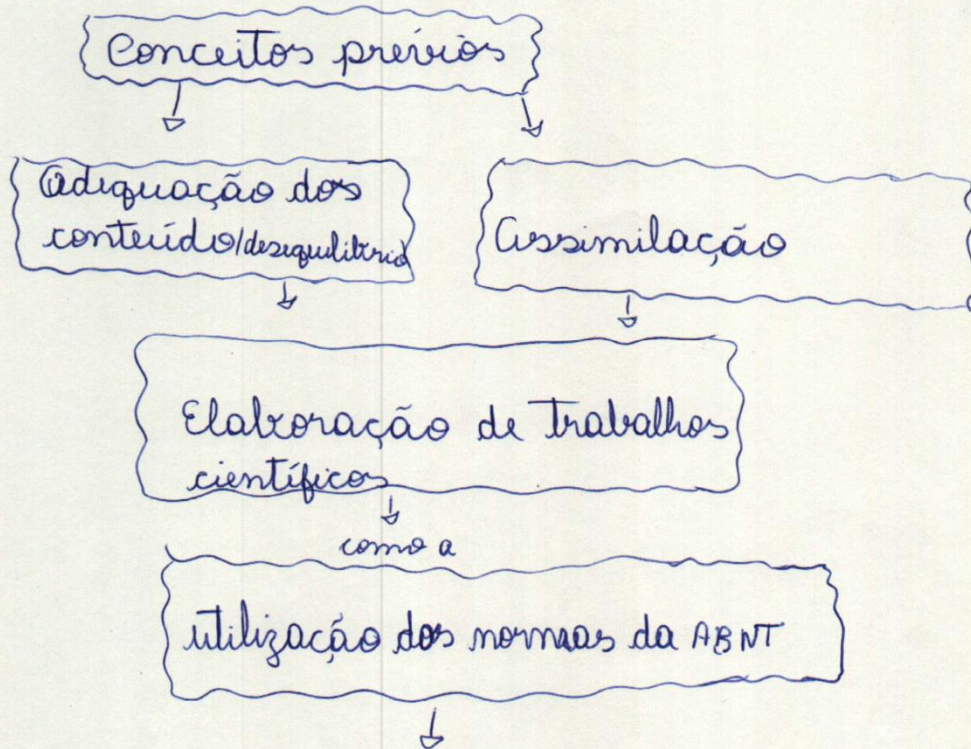 Conceitos prévios
Adequação dos
conteúdo/desequilíbrio
Assimilação
Elaboração de Trabalhos
científicos
como a
utilização dos normas da ABNT